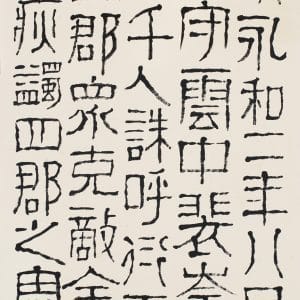 永和二年八月
守雲中裴岑
千人誅呼衍王
部眾克敵全
疢蠲四郡之害